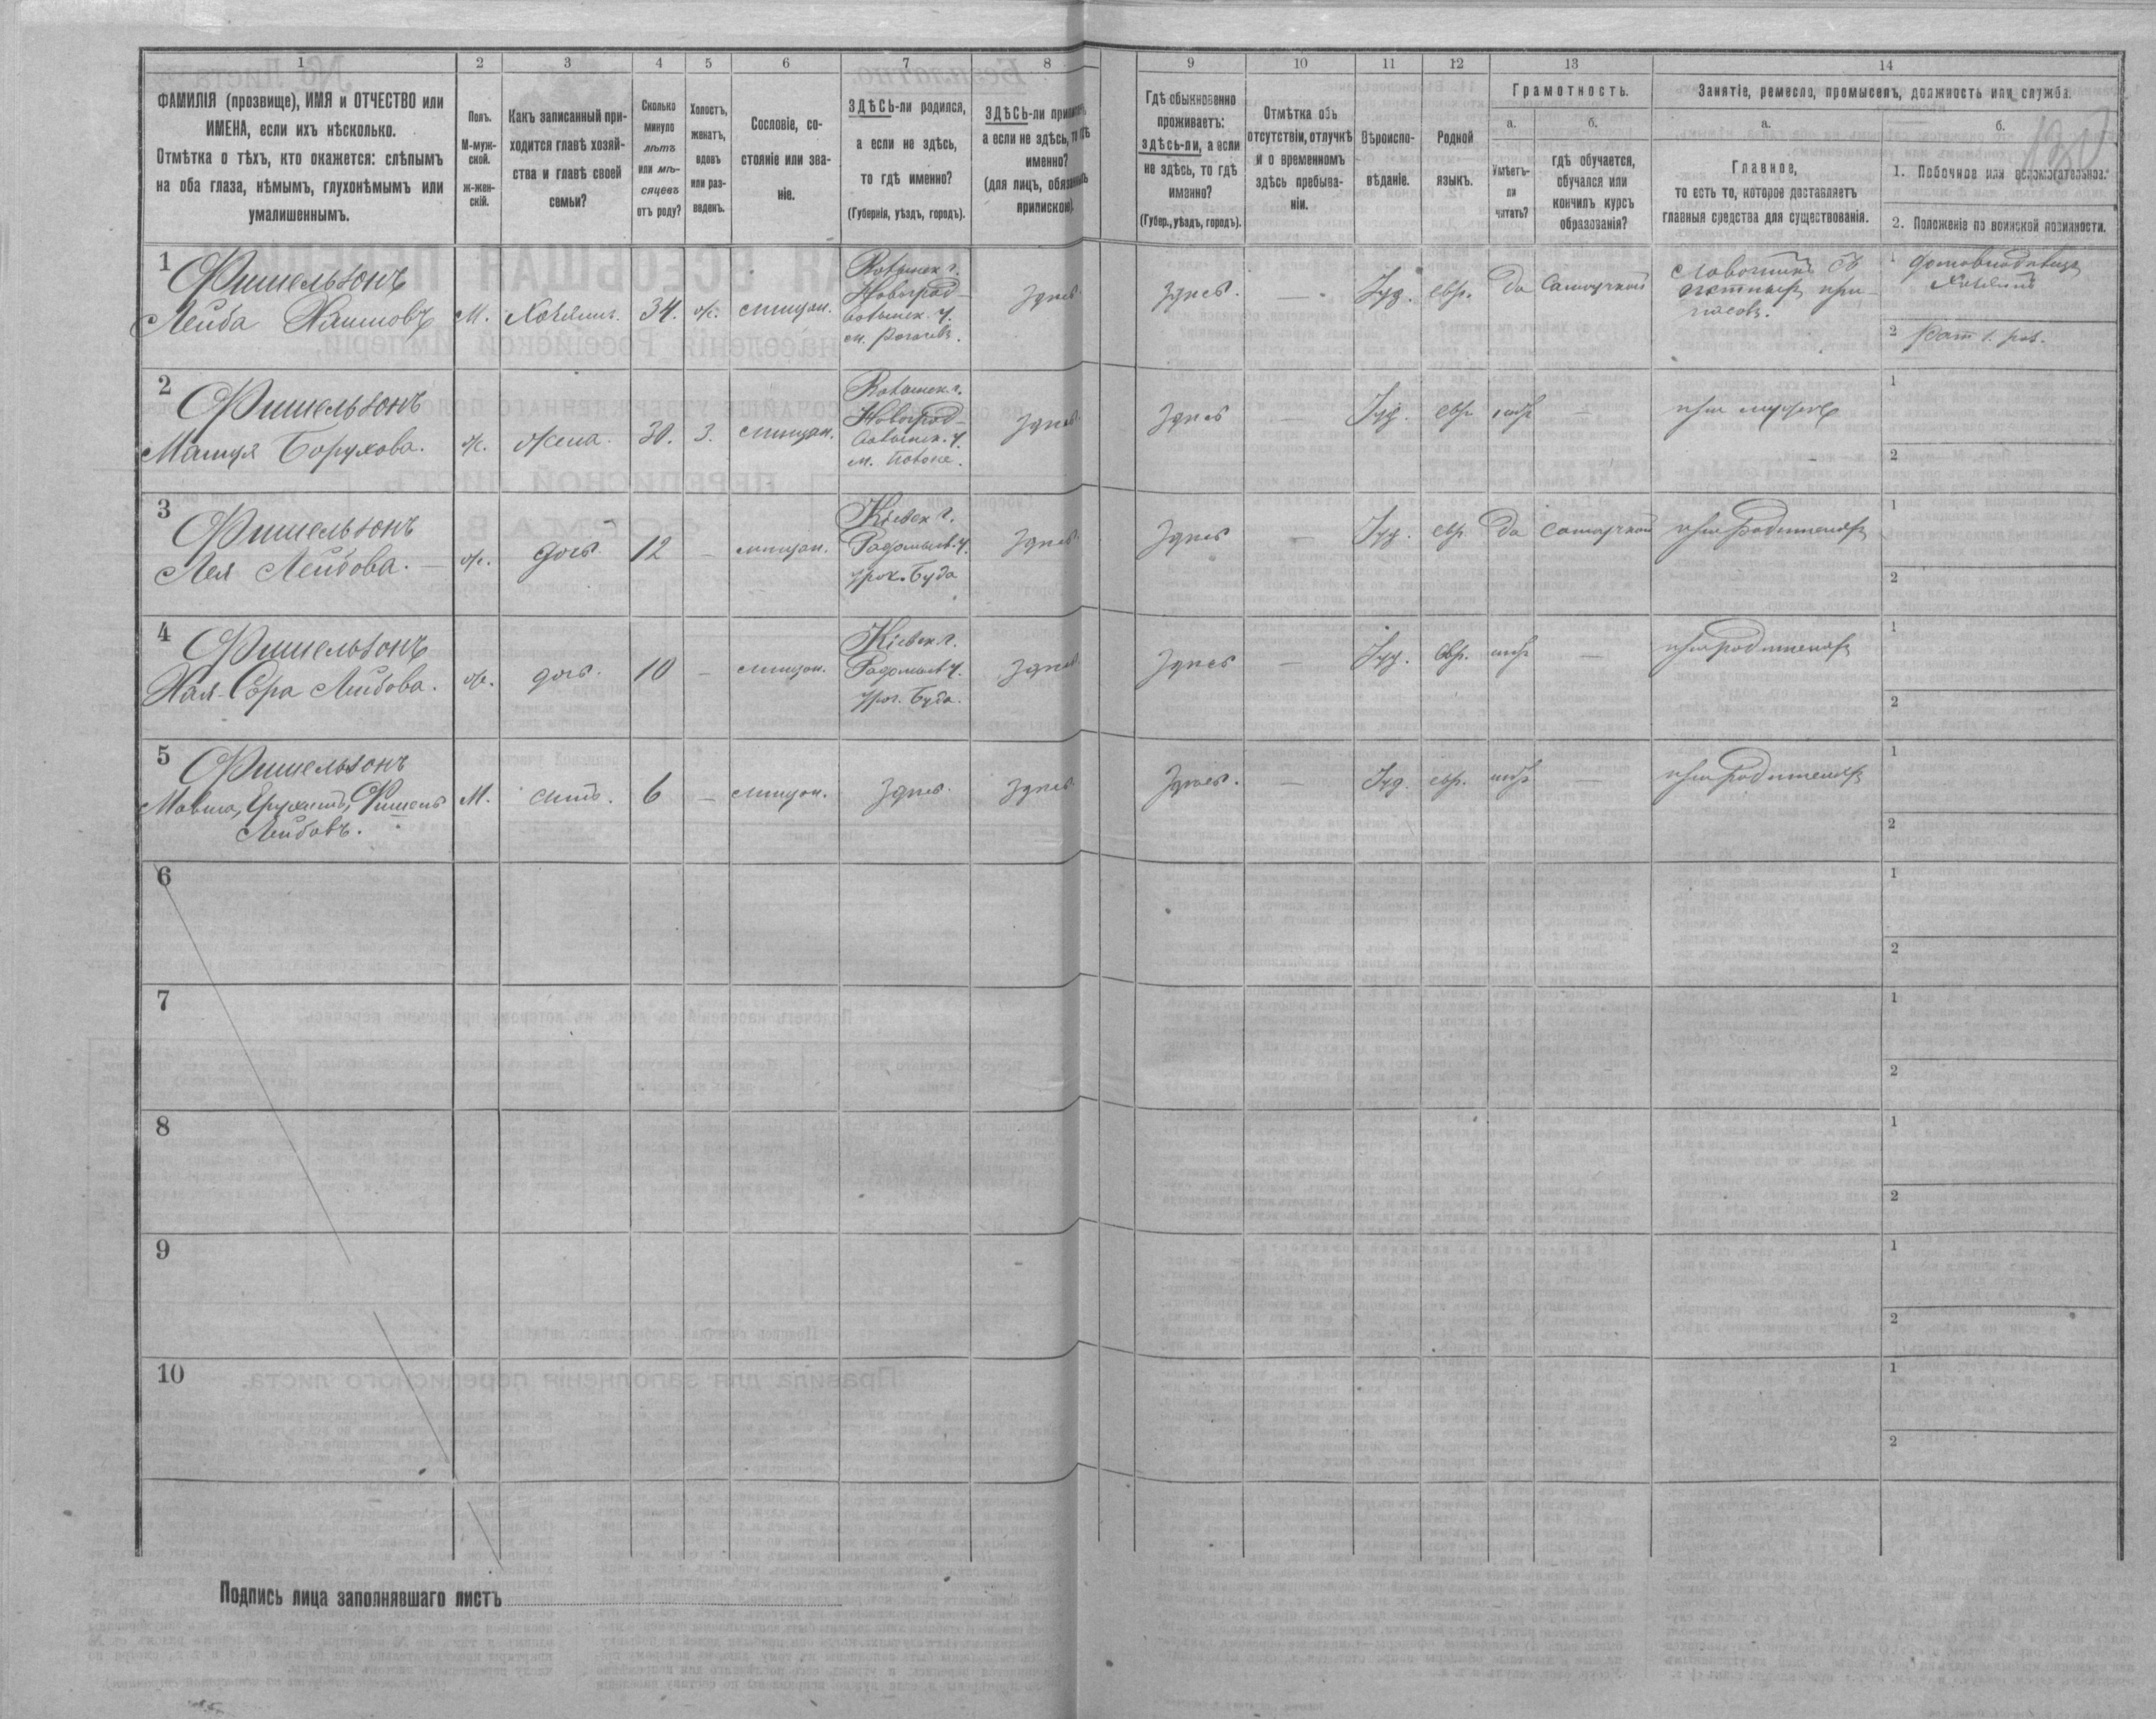 1 2 3 4 5 6 7 8 9 10 11 12 13 14
ФАМИЛІЯ (прозвище), ИМЯ и ОТЧЕСТВО или
ИМЕНА, если ихъ нѣсколько.
Отмѣтка о тѣхъ, кто окажется: слѣпымъ
на оба глаза, нѣмымъ, глухонѣмымъ или
умалишеннымъ.
Полъ.
М-муж-
ской.
ж-жен-
скій.
Какъ записанный при-
ходится главѣ хозяй-
ства и главѣ своей
семьи?
Сколько
минуло
лѣтъ
или мѣ-
сяцевъ
отъ роду?
Холостъ,
женатъ,
вдовъ
или раз-
веденъ.
Сословіе, со-
стояніе или зва-
ніе.
ЗДѢСЬ-ли родился,
а если не здѣсь,
то гдѣ именно?
(Губернія, уѣздъ, городъ).
ЗДѢСЬ-ли
а если не здѣсь, то гдѣ
именно?
(для лицъ,
припискою)
Гдѣ обыкновенно
проживаетъ:
здѣсь-ли, а если
не здѣсь, то гдѣ
именно?
(Губер., уѣздъ, городъ).
Отмѣтка объ
отсутствіи, отлучкѣ
и о временномъ
здѣсь пребыва-
ніи.
Вѣроиспо-
вѣданіе.
Родной
языкъ.
Грамотность.
а.
Умѣетъ-
ли
читать?
б.
гдѣ обучается,
обучался или
кончилъ курсъ
образованія?
Занятіе, ремесло, промыселъ, должность или служба.
а.
Главное,
то есть то, которое доставляетъ
главныя средства для существованія.
б.
1. Побочное или вспомогательное.
2. Положеніе по воинской повинности.
1
Фишельзонъ
Лейба
М.
Хозяинъ.
34.
ж.
мѣщан.
Волынск. г.
Новоград-
волынск. у.
м. Рогачевъ.
здѣсь
здѣсь.
—
Іуд.
евр.
да
Самоучкой
1
Хозяинъ
2
Рат. 1 раз.
2
Фишельзонъ
Борухова.
ж.
жена.
30.
З.
мѣщан.
Волынск. г.
Новоград-
волынск. у.
здѣсь
здѣсь
—
Іуд.
евр.
—
при мужѣ
1
2
3
Фишельзонъ
Лея Лейбова.
ж.
дочь
12
—
мѣщан.
Кіевск. г.
Радомысл. у.
урок. Буда
здѣсь
здѣсь
—
Іуд.
евр.
да
самоучкой
при родителяхъ
1
2
4
Фишельзонъ
Хая-Сора Лейбова.
ж.
дочь.
10
—
мѣщан.
Кіевск. г.
Радомысл. у.
уроч. Буда.
здѣсь
здѣсь
—
Іуд.
евр.
—
при родителяхъ
1
2
5
Фишельзонъ
Фишель
Лейбовъ.
М.
сынъ.
6
—
мѣщан.
здѣсь
здѣсь
здѣсь.
—
Іуд.
евр.
—
при родителяхъ
1
2
6
1
2
7
1
2
8
1
2
9
1
2
10
1
2
Подпись лица заполнявшаго листъ